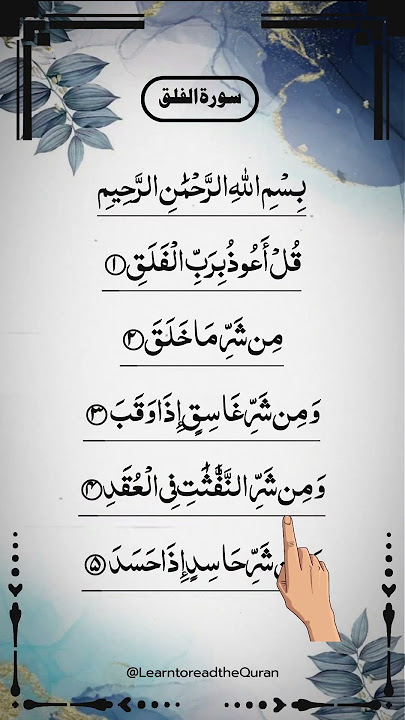 سورة الفلق
بِسْمِ اللهِ الرَّحْمٰنِ الرَّحِيْمِ
قُلْ أَعُوذُ بِرَبِّ الْفَلَقِ ١
مِن شَرِّ مَا خَلَقَ ٢
وَمِن شَرِّ غَاسِقٍ إِذَا وَقَبَ ٣
وَمِن شَرِّ النَّفّٰثٰتِ فِي الْعُقَدِ ۴
شَرِّ حَاسِدٍ إِذَا حَسَدَ ۵
@LearntoreadtheQuran